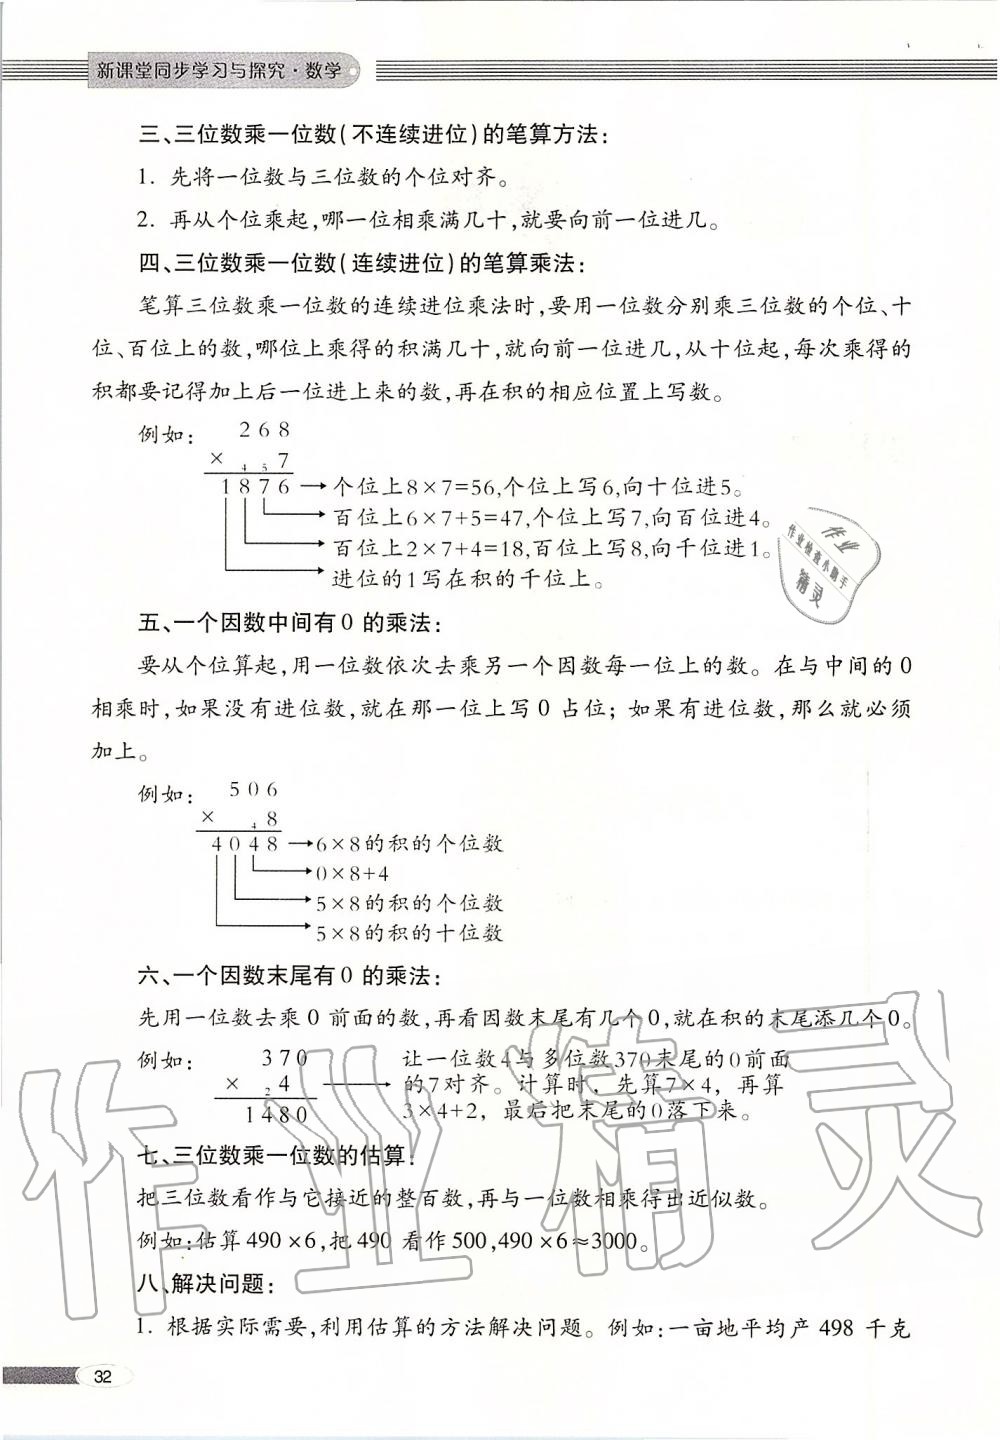 新课堂同步学习与探究·数学
三、三位数乘一位数(不连续进位)的笔算方法:
1. 先将一位数与三位数的个位对齐。
2. 再从个位乘起,哪一位相乘满几十,就要向前一位进几。
四、三位数乘一位数(连续进位)的笔算乘法:
笔算三位数乘一位数的连续进位乘法时,要用一位数分别乘三位数的个位、十
位、百位上的数,哪位上乘得的积满几十,就向前一位进几,从十位起,每次乘得的
积都要记得加上后一位进上来的数,再在积的相应位置上写数。
例如: 268
× 4 5 7
1876→个位上8×7=56,个位上写6,向十位进5。
百位上6×7+5=47,个位上写7,向百位进4。
百位上2×7+4=18,百位上写8,向千位进1。
进位的1写在积的千位上。
作业
作业检查小助手
精灵
五、一个因数中间有0的乘法:
要从个位算起,用一位数依次去乘另一个因数每一位上的数。在与中间的0
相乘时,如果没有进位数,就在那一位上写0占位;如果有进位数,那么就必须
加上。
例如: 506
× 4 8
4048→6×8的积的个位数
0×8+4
5×8的积的个位数
5×8的积的十位数
六、一个因数末尾有0的乘法:
先用一位数去乘0前面的数,再看因数末尾有几个0,就在积的末尾添几个0。
例如: 370 让一位数4与多位数370末尾的0前面
× 2 4 → 的7对齐。计算时,先算7×4,再算
1480 3×4+2,最后把末尾的0落下来。
七、三位数乘一位数的估算:
把三位数看作与它接近的整百数,再与一位数相乘得出近似数。
例如:估算490×6,把490看作500,490×6≈3000。
八、解决问题:
1. 根据实际需要,利用估算的方法解决问题。例如:一亩地平均产498千克
32
作业精灵